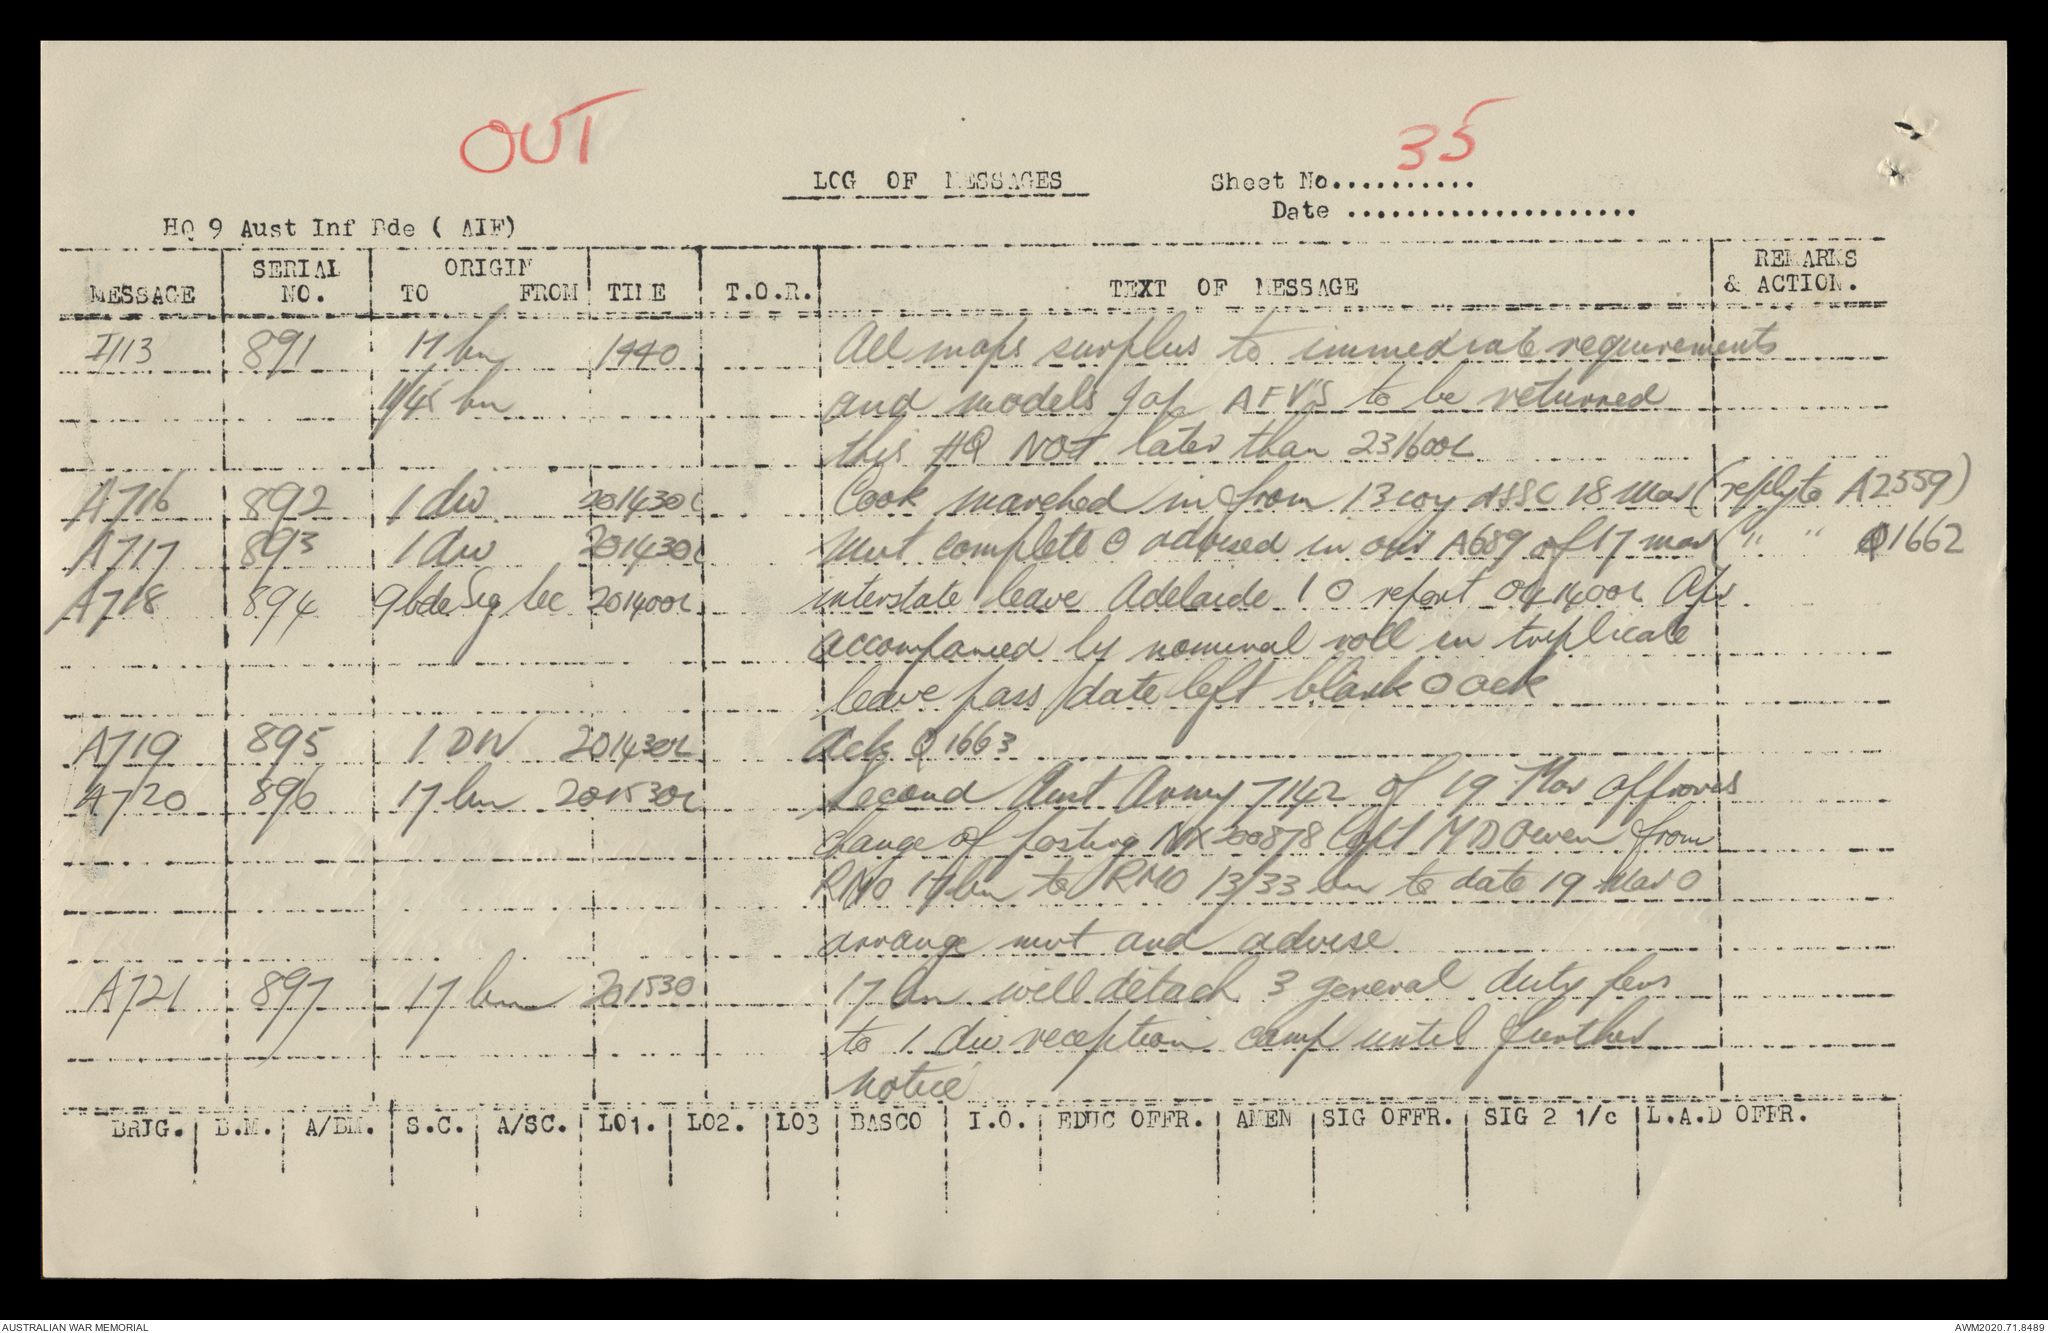 OUT
35
LOG OF MESSAGES
Sheet No...........
Date .....................
HQ 9 Aust Inf Bde ( AIF)
MESSAGE SERIAL NO. ORIGIN TO FROM TIME T.O.R. TEXT OF MESSAGE REMARKS & ACTION.
I113 891 17 bn 1440 All maps surplus to immediate requirements
/45 bn and models Jap AFV'S to be returned
this HQ NOT later than 231600L
A716 892 1 div 201430L Cook marched in from 13 coy 18 Mar (reply to A2559)
A717 893 1 div 201430L mvt complete O advised in our A689 of 17 mar ( " " Q1662
A718 894 9 bde Sig Sec 201400L interstate leave Adelaide 1 O report 041400L Apr
accompanied by nominal roll in triplicate
leave pass date left blank O ack
A719 895 1 DIV 201430L Ack Q1663
A720 896 17 bn 201530L Second Aust Army 7142 of 19 Mar approves
change of posting NX200878 Capt M D Owen from
RMO 17 bn to RMO 13/33 bn to date 19 Mar O
arrange mvt and advise
A721 897 17 bn 201530 17 bn will detach 3 general duty pers
to 1 div reception camp until further
notice
BRIG. B.M. A/BM. S.C. A/SC. LO1. LO2. LO3 BASCO I.O. EDUC OFFR. AMEN SIG OFFR. SIG 2 1/c L.A.D OFFR.
AUSTRALIAN WAR MEMORIAL AWM2020.71.8489